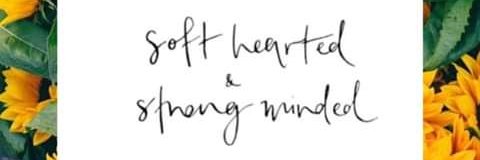 soft hearted
&
strong minded